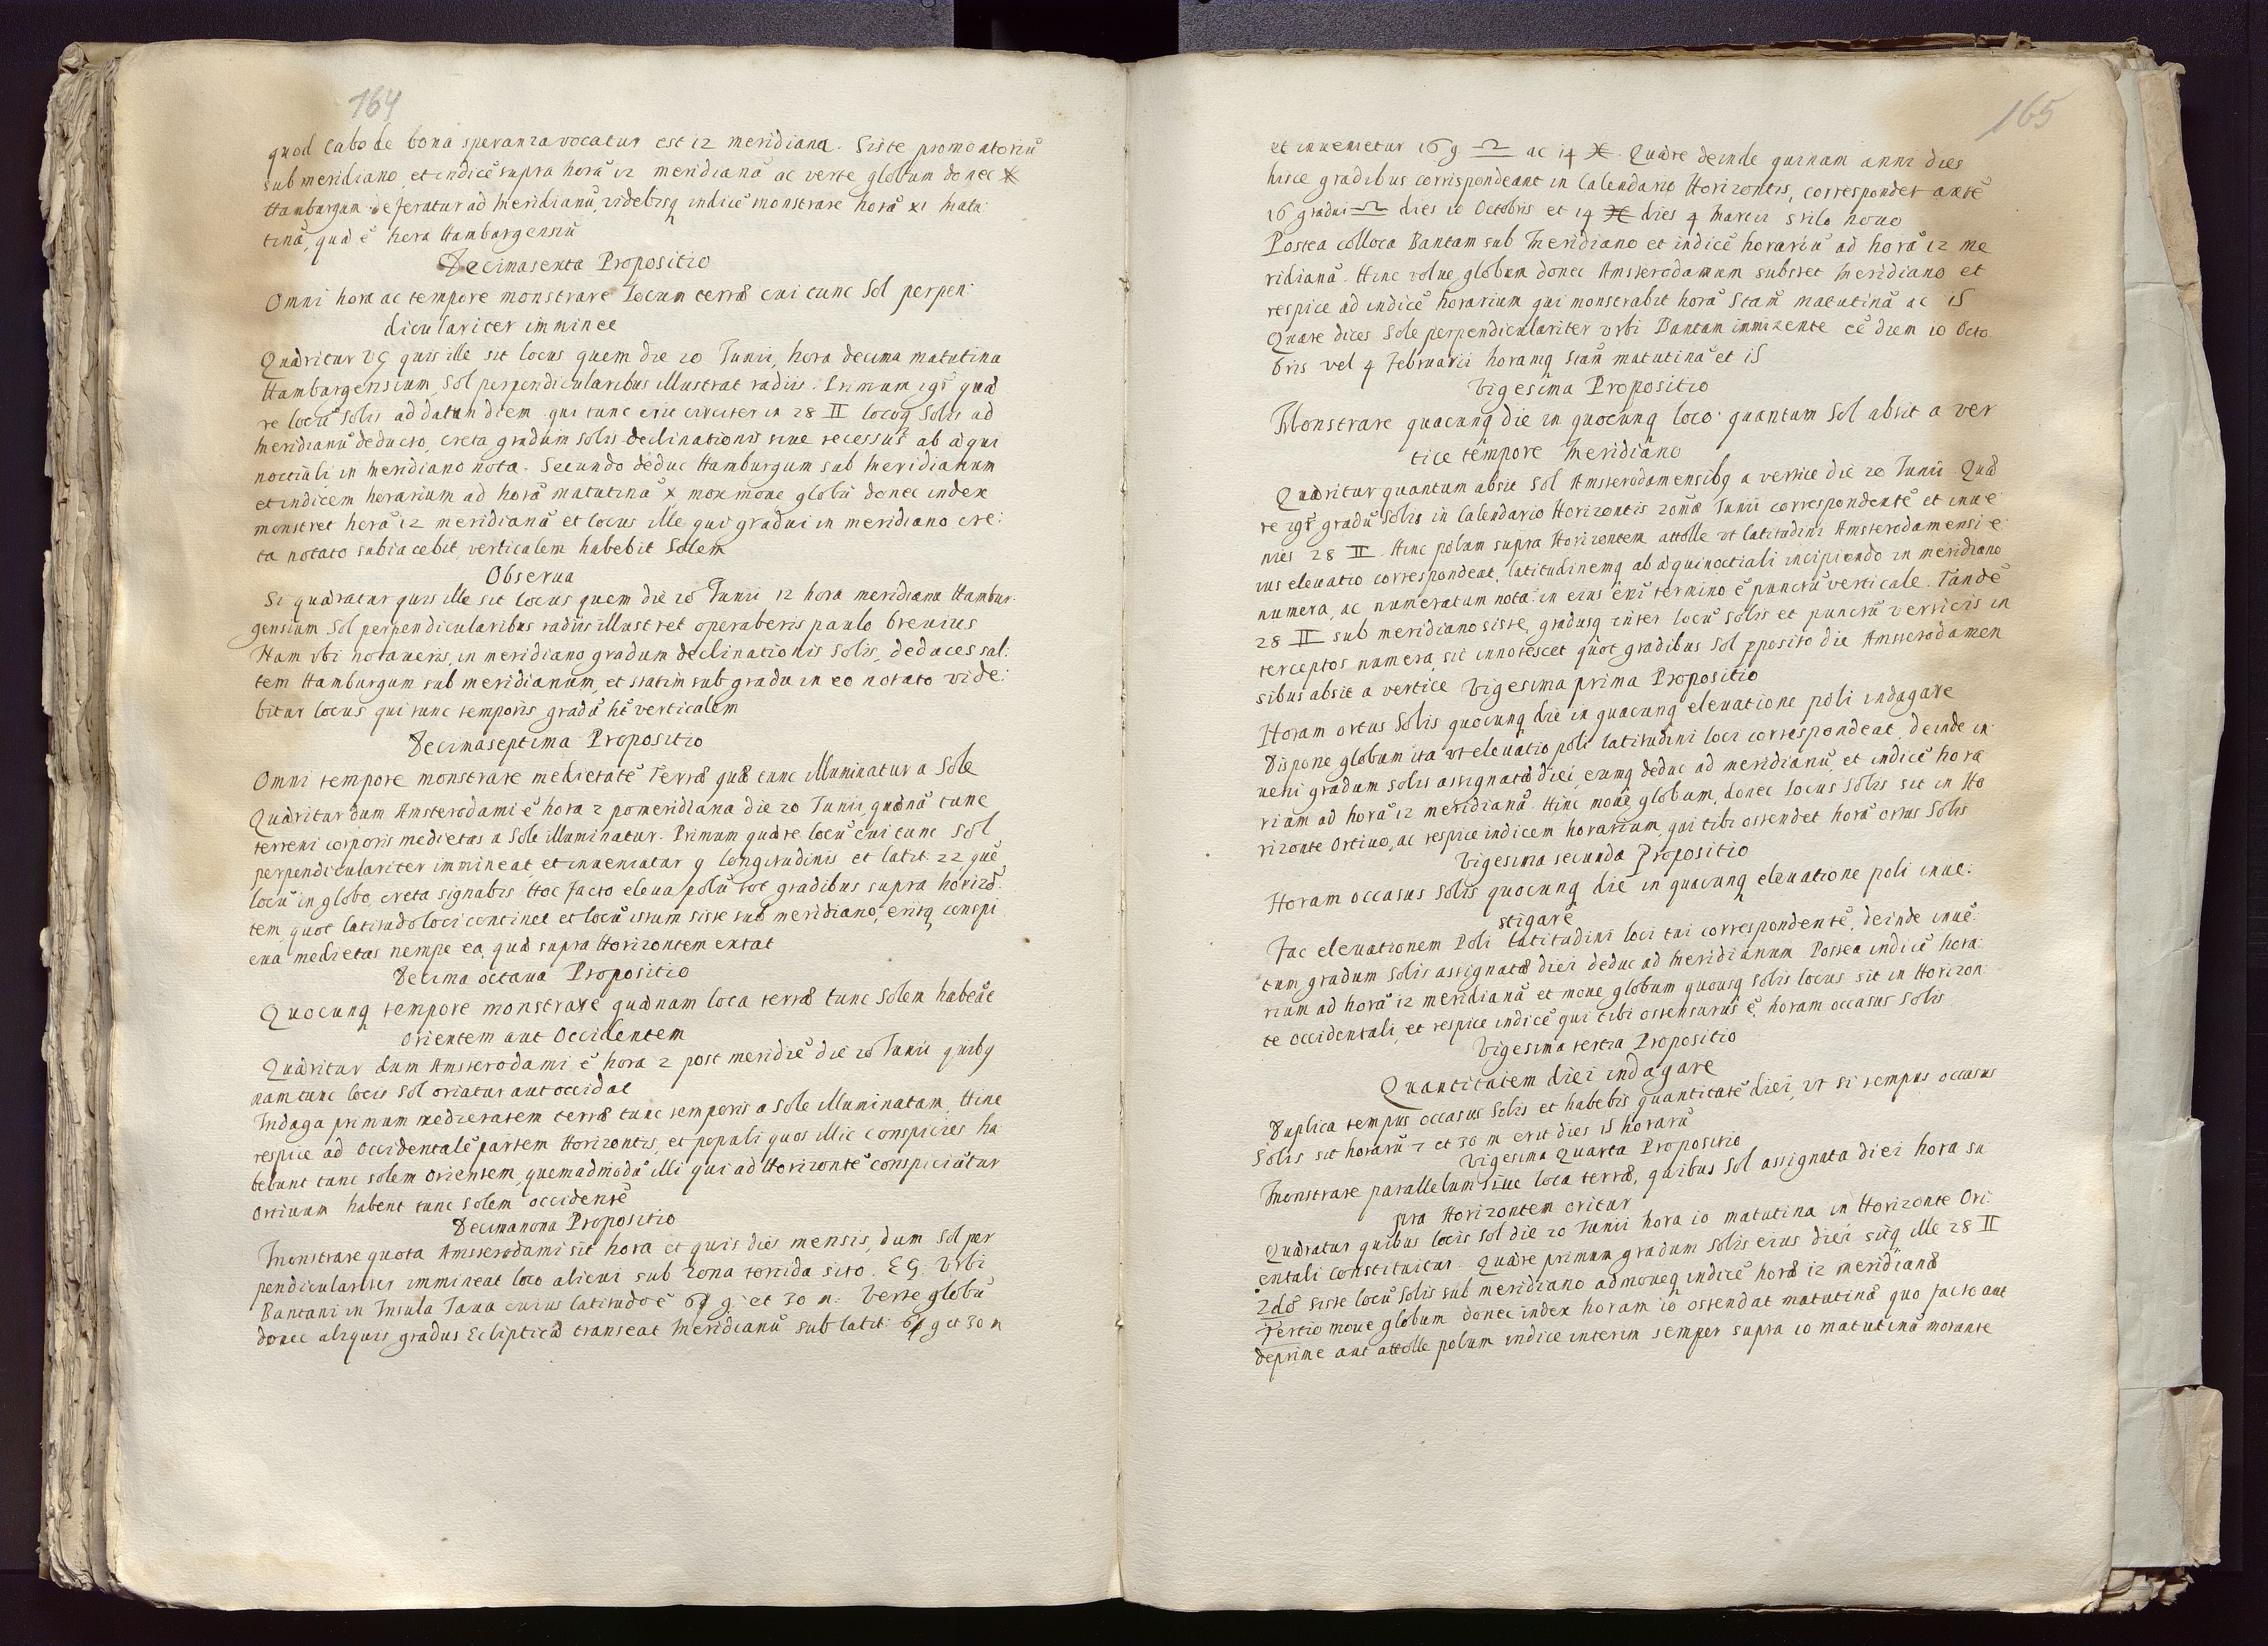 164
quod Cabo de bona speranza vocatur est 12 meridiana. Siste promontoriũ
sub meridiano, et indicẽ supra horã 12 meridianã ac verte globum donec
Hamburgum deferatur ad meridianũ, videbisq indicẽ monstrare horã xi matu
tinã, quæ ẽ hora Hamburgensiũ
Decimasexta Propositio
Omni hora ac tempore monstrare locum terræ cui tunc Sol perpen:
diculariter imminet
Quæritur VG quis ille sit locus quem die 20 Junii, hora decima matutina
Hamburgensium, Sol perpendicularibus illustrat radiis. Primum igr̃ quæ
re locũ Solis ad datum diem qui tunc erit circiter in 28 ♊ locoq Solis ad
meridianũ deducto, creta gradum solis declinationis sive recessus ab æqui
noctiali in meridiano nota. Secundo deduc Hamburgum sub meridianum
et indicem horarium ad horã matutinã x mox move globũ donec index
monstret horã 12 meridianã et locus ille qui gradui in meridiano cre:
ta notato subiacebit, verticalem habebit Solem
Observa
Si quæratur quis ille sit locus quem die 20 Junii 12 hora meridiana Hambur:
gensium Sol perpendicularibus radiis illustret operaberis paulo brevius
Nam ubi notaveris, in meridiano gradum declinationis Solis, deduces sal:
tem Hamburgum sub meridianum, et statim sub gradu in eo notato vide:
bitur locus qui tunc temporis gradũ ht̃ verticalem
Decimaseptima Propositio
Omni tempore monstrare medietatẽ Terræ quæ tunc illuminatur a Sole
Quæritur dum Amsterodami ẽ hora 2 pomeridiana die 20 Junii, quænã tunc
terreni corporis medietas a Sole illuminatur. Primum quære locũ cui tunc Sol
perpendiculariter immineat, et inveniatur g longitudinis et latit: 22 quẽ
locũ in globo, creta signabis Hoc facto eleva polũ tot gradibus supra horizõ
tem quot latitudo loci continet et locũ istum siste sub meridiano, eritq conspi
cua medietas nempe ea, quæ supra Horizontem extat
Decima octava Propositio
Quocunq tempore monstrare quænam loca terræ tunc Solem habeãt
Orientem aut Occidentem
Quæritur dum Amsterodami ẽ hora 2 post meridiẽ die 20 Junii quibq
nam tunc locis Sol oriatur aut occidat
Indaga primum medietatem terræ tunc temporis a Sole illuminatam, Hinc
respice ad Occidentalẽ partem Horizontis, et populi quos illic conspicies ha
bebunt tunc solem orientem, quemadmodũ illi qui ad Horizontẽ conspiciũtur
Ortivum habent tunc solem occidentẽ
Decimanona Propositio
Monstrare quota Amsterodami sit hora et quis dies mensis, dum Sol per
pendiculariter immineat loco alicui sub Zona torrida sito. EG: Urbi
Bantani in Insula Java cuius latitudo ẽ 6 g: et 30 m. Verte globũ
donec aliquis gradus Eclipticæ transeat meridianũ sub latit: 6 g et 30 m
165
et invenietur 16 g ♎ ac 14 ♓. Quære deinde quinam anni dies
hisce gradibus correspondeant in Calendario Horizontis, correspondet autẽ
16 gradui ♎ dies 10 Octobris et 14 ♓ dies 4 Marcii stilo novo
Postea colloca Bantam sub Meridiano et indicẽ horariũ ad horã 12 me
ridianã. Hinc volve globum donec Amsterodamum substet meridiano et
respice ad indicẽ horarium qui monstrabit horã 5tam matutinã ac 15
Quare dices Sole perpendiculariter Urbi Bantam imminente eẽ diem 10 Octo
bris vel 4 Februarii horamq 5tam matutinã et 15
Vigesima Propositio
Monstrare quacunq die in quocunq loco quantum Sol absit a ver
tice tempore Meridiano
Quæritur quantum absit Sol Amsterodamensibq a vertice die 20 Junii. Quæ
re igr̃ gradũ Solis in Calendario Horizontis 20mæ Junii correspondentẽ et inve
nies 28 ♊. Hinc polum supra Horizontem attolle ut latitudini Amsterodamensi e
ius elevatio correspondeat, latitudinemq ab æquinoctiali incipiendo in meridiano
numera, ac numeratum nota: in eius eñi termino ẽ punctũ verticale. Tandẽ
28 ♊ sub meridiano siste, gradusq inter locũ Solis et punctũ verticis in
terceptos numera, sic innotescet quot gradibus Sol pposito die Amsterodamen
sibus absit a vertice Vigesima prima Propositio
Horam ortus Solis quocunq die in quacunq elevatione poli indagare
Dispone globum ita ut elevatio poli latitudini loci correspondeat, deinde in:
veni gradum solis assignatæ diei, eumq deduc ad meridianũ, et indicẽ hora
riam ad horã 12 meridianã. Hinc move globum, donec locus Solis sit in Ho
rizonte Ortivo, ac respice indicem horarium, qui tibi ostendet horã ortus Solis
Vigesima secunda Propositio
Horam occasus Solis quocunq die in quacunq elevatione poli inve:
stigare
Fac elevationem Poli latitudini loci tui correspondentẽ, deinde invẽ:
tum gradum Solis assignatæ diei deduc ad meridianum Postea indicẽ hora:
rium ad horã 12 meridianã et move globum quousq Solis locus sit in Horizon:
te Occidentali, et respice indicẽ qui tibi ostensurus ẽ, horam occasus Solis
Vigesima tertia Propositio
Quantitatem diei indagare
Duplica tempus occasus Solis et habebis quantitatẽ diei, ut si tempus occasus
Solis sit horarũ 7 et 30 m erit dies 15 horarũ
Vigesima Quarta Propositio
Monstrare parallelum sive loca terræ, quibus Sol assignata diei hora su
pra Horizontem oritur
Quæratur quibus locis Sol die 20 Junii hora 10 matutina in Horizonte Ori:
entali constituitur. Quære primum gradum Solis eius diei sitq ille 28 ♊
2do siste locũ Solis sub meridiano admoveq indicẽ horæ 12 meridianæ
Tertio move globum donec index horam 10 ostendat matutinã quo facto aut
deprime aut attolle polum indice interim semper supra 10 matutinã morante